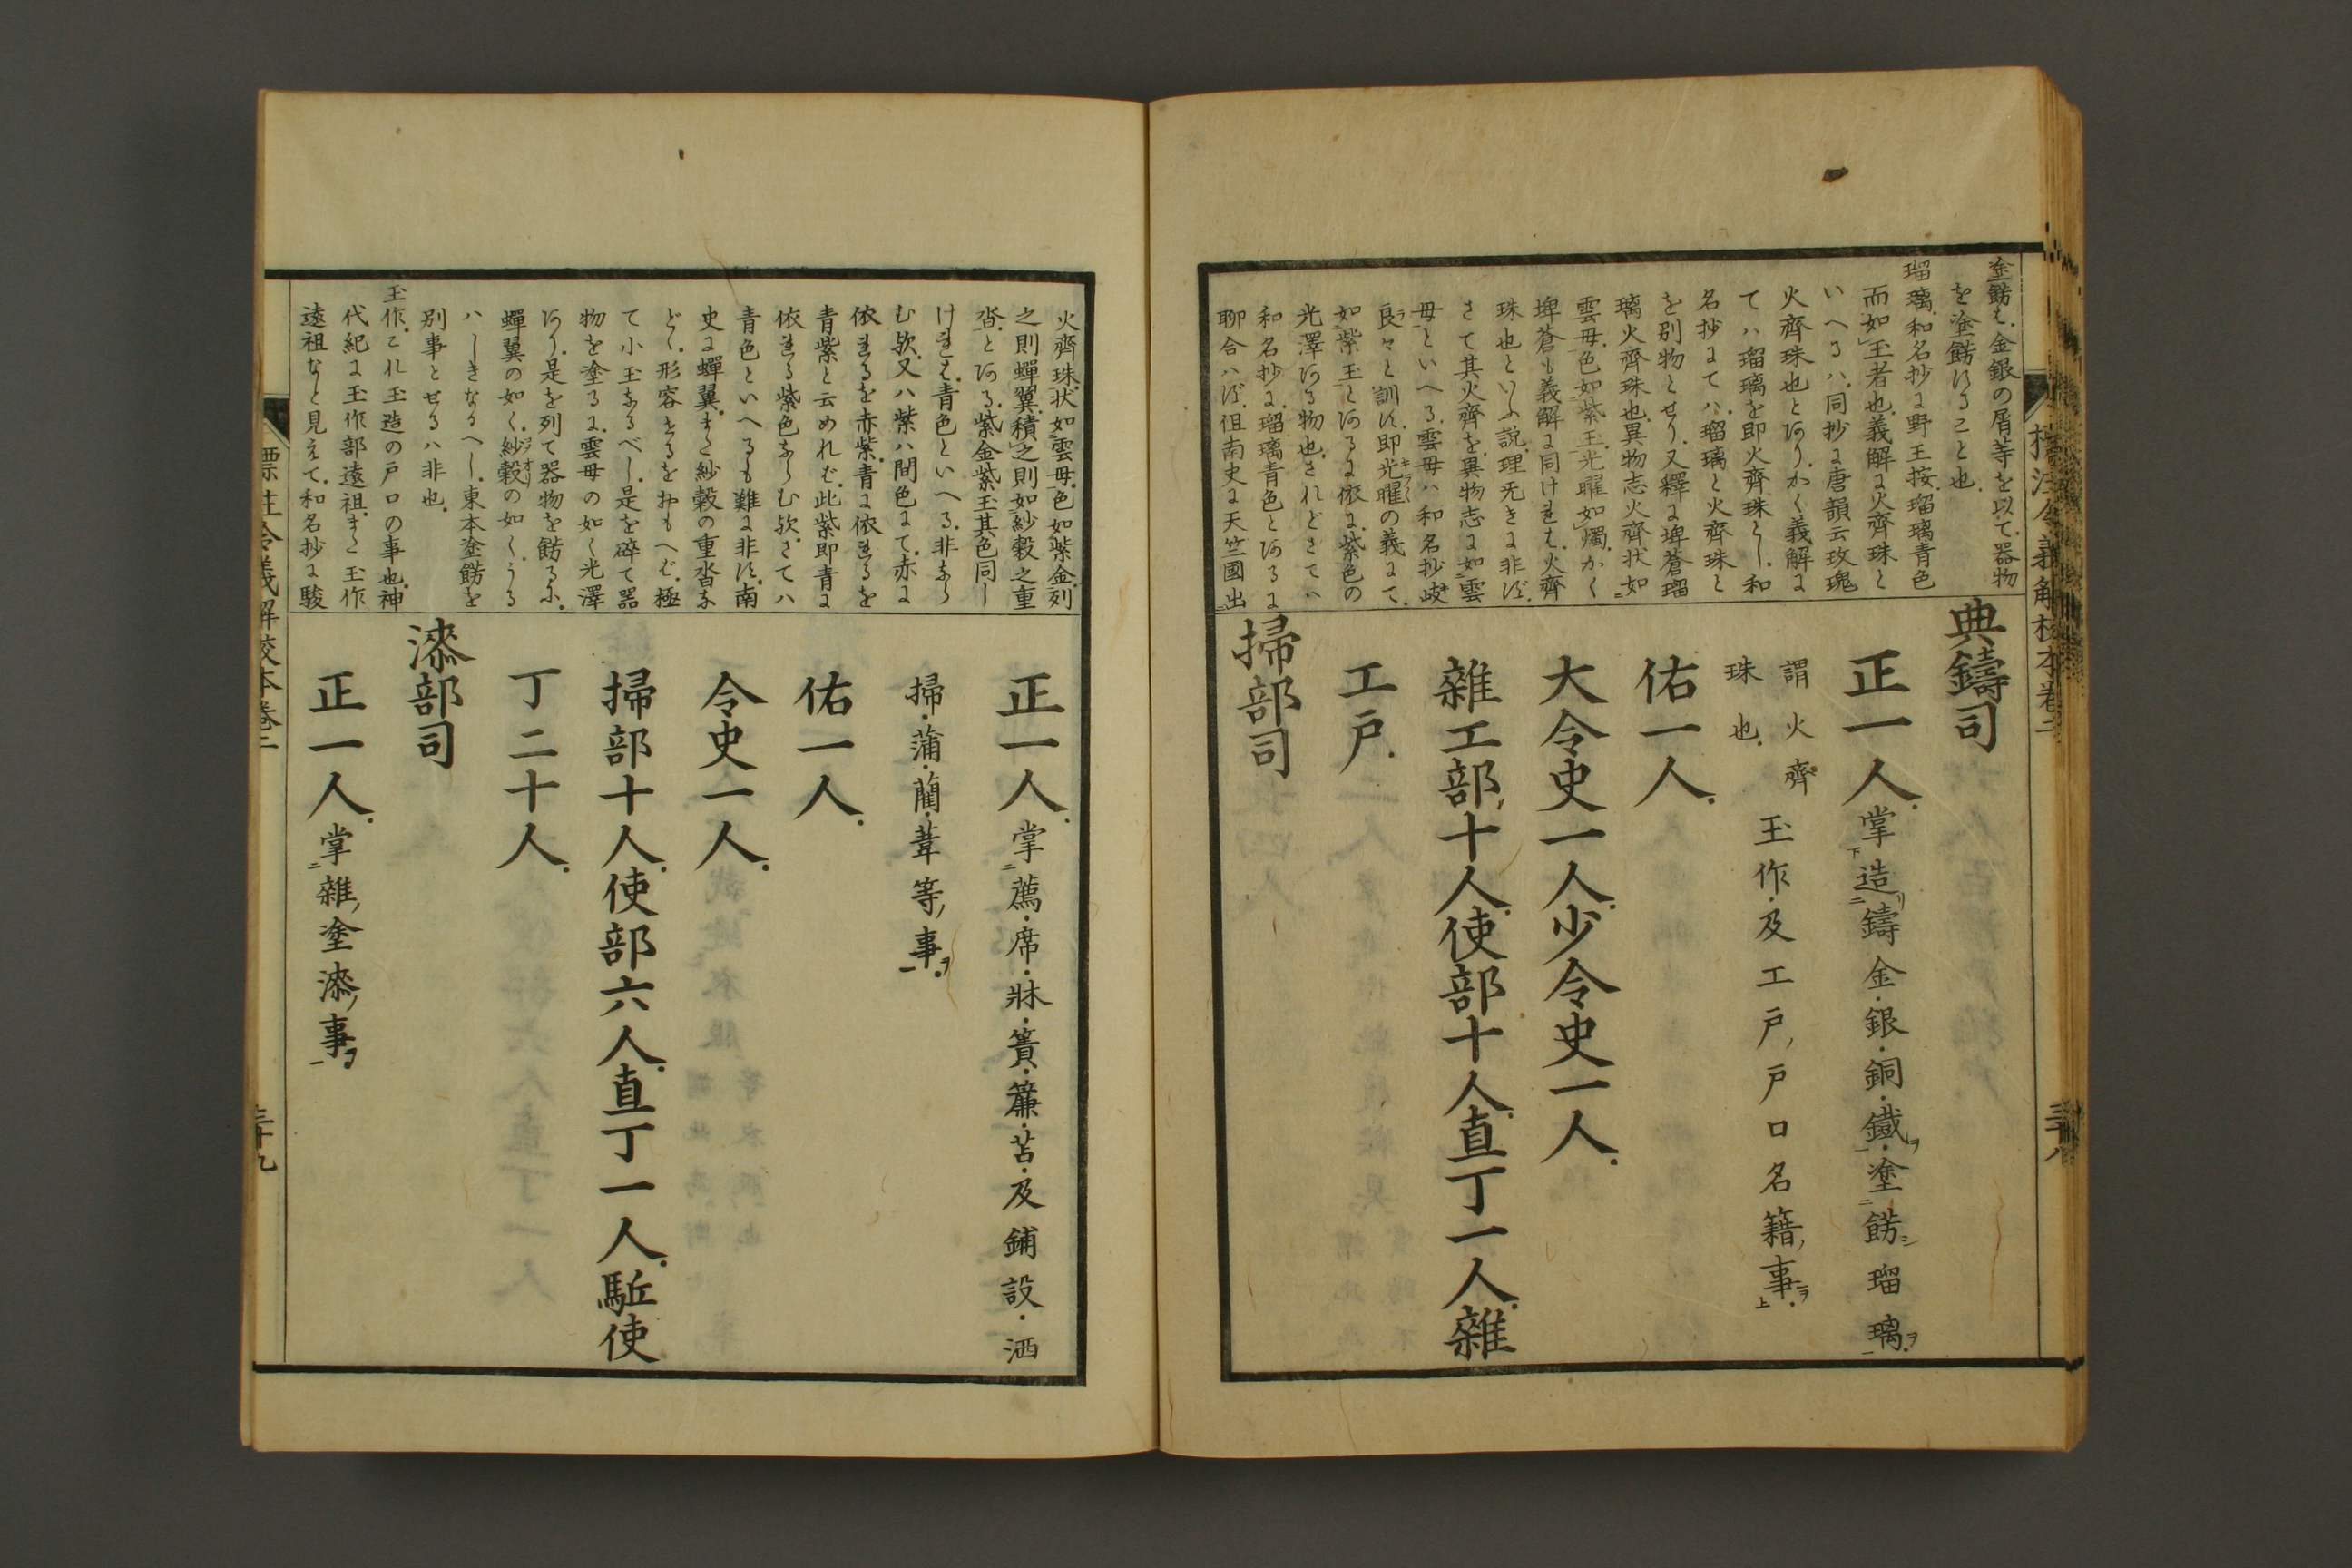 塗餝は、金銀の屑等を以て、器物
を塗餝はることと也、
瑠璃、和名抄に野王按、瑠璃青色
而如玉者也、義解に火齊珠と
いへるハ、同抄に唐韻云玫瑰
火齊珠也とあり、かく義解に
てハ瑠璃を即火齊珠とし、和
名抄にてハ、瑠璃と火齊珠と
を別物とせり、又釋に埤蒼瑠
璃火齊珠也、異物志火齊状如
雲母、色如紫玉、光曜如燭、かく
埤蒼も義解に同けれは、火齊
珠也といふ説、理无きに非ず、
さて其火齊を、異物志に如雲
母といへる、雲母ハ和名抄岐
良々と訓ず、即光曜の義にて、
如紫玉とあるに依に、紫色の
光澤ある物也、されどさてハ
和名抄に瑠璃青色とあるに
聊合ハず、但南史に天竺國出
典鑄司
正一人、掌造鑄金・銀・銅・鐵・塗餝瑠璃、
謂火齊
珠也、
玉作・及工戸戸口名籍事、
佑一人、
大令史一人、少令史一人、
雜工部十人、使部十人、直丁一人、雜
工戸、
掃部司
火齊珠、状如雲母、色如紫金、列
之則蟬翼、積之則如紗縠之重
沓、とある、紫金紫玉其色同し
けれは、青色といへる、非ならむ欤
又ハ紫ハ間色にて、赤に
依れるを赤紫、青に依れるを
青紫と云めれば、此紫即青に
依れる紫色ならむ欤、さてハ
青色といへるも難に非ず、南
史に蟬翼、また紗縠の重沓な
どく、形容せるをおもへば、極
て小玉なるべし、是を碎て器
物を塗るに、雲母の如く光澤
あり、是を列て器物を餝るに、
蟬翼の如く、紗縠の如く、うる
ハしきなるへし、東本塗餝を
別事とせるハ非也、
玉作、これ玉造の戸口の事也、神
代紀に玉作部遠祖、また玉作
遠祖なと見えて、和名抄に駿
正一人、掌薦・席・牀・簀・簾・苫・及鋪設・洒
掃・蒲・藺・葦等事、
佑一人、
令史一人、
掃部十人、使部六人、直丁一人、駈使
丁二十人、
漆部司
正一人、掌雜塗漆事、
標註令義解校本卷二
三十九